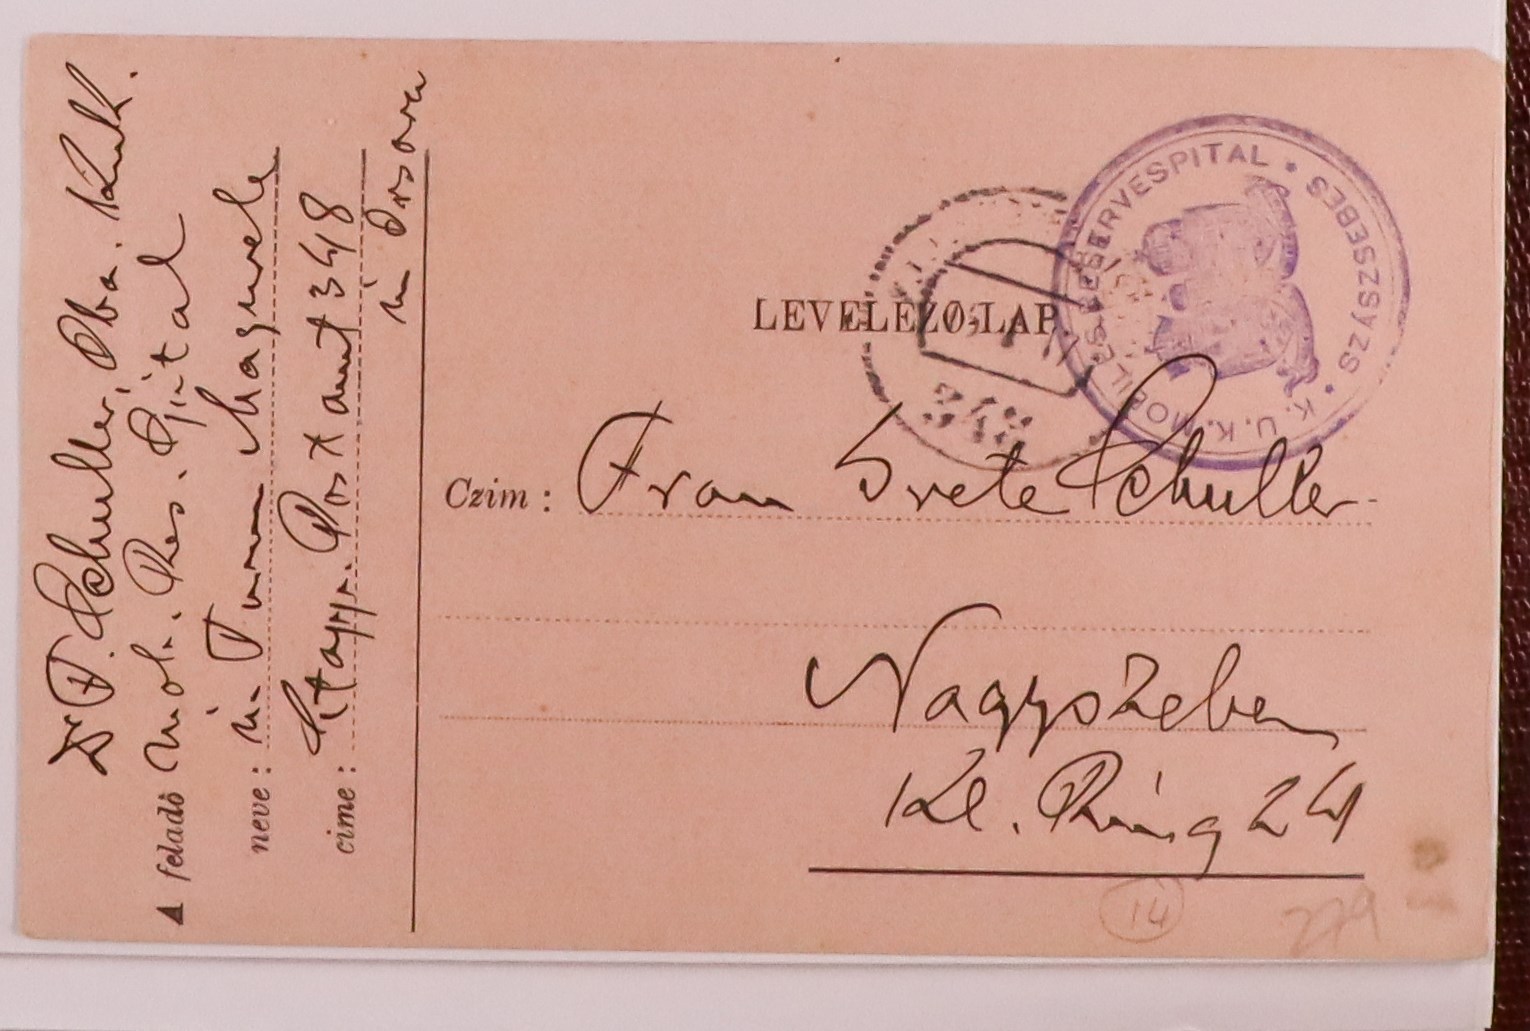 Dr F. Schuller, Oba.
Mob. Res. Spital
A feladó
in Turn Magurele
neve:
Etapp. Postamt 348
cime:
in Orsova
LEVELEZŐ-LAP
348
K.U.K. MOBILES RESERVESPITAL • SZÁSZSEBES •
Czim: Frau Grete Schuller
Nagyszeben
Kl. Ring 24
14
279